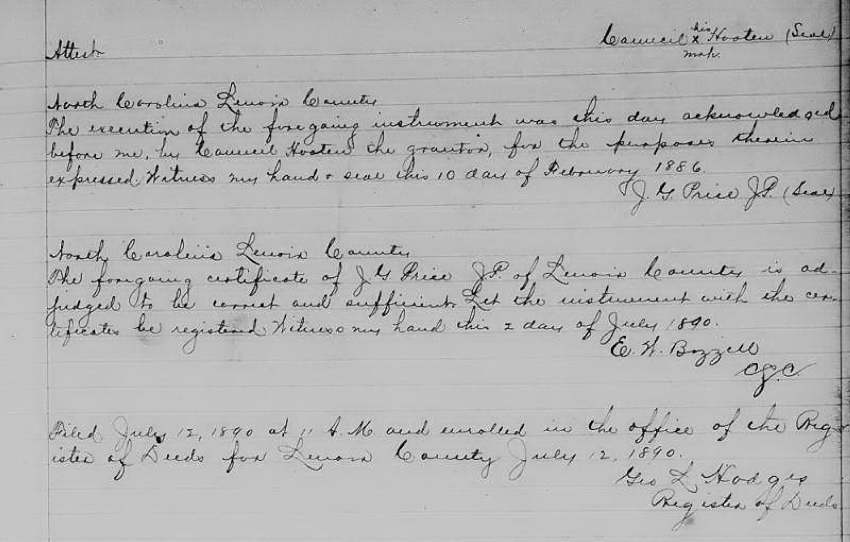 Council his x mark Hooten (Seal)
Attest
North Carolina Lenoir County
The execution of the foregoing instrument was this day acknowledged
before me, by Council Hooten the grantor, for the purposes therein
expressed. Witness my hand & seal this 10 day of February 1886.
J. G. Prise J.P. (Seal)
North Carolina Lenoir County
The foregoing certificate of J G Prise J.P. of Lenoir County is ad-
judged to be correct and sufficient. Let the instrument with the cer-
tificates be registered Witness my hand this 2 day of July 1890.
E. W. Bizzell
CSC
Filed July 12, 1890 at 11 A.M and enrolled in the office of the Reg-
ister of Deeds for Lenoir County July 12, 1890.
Geo L Hodges
Register of Deeds